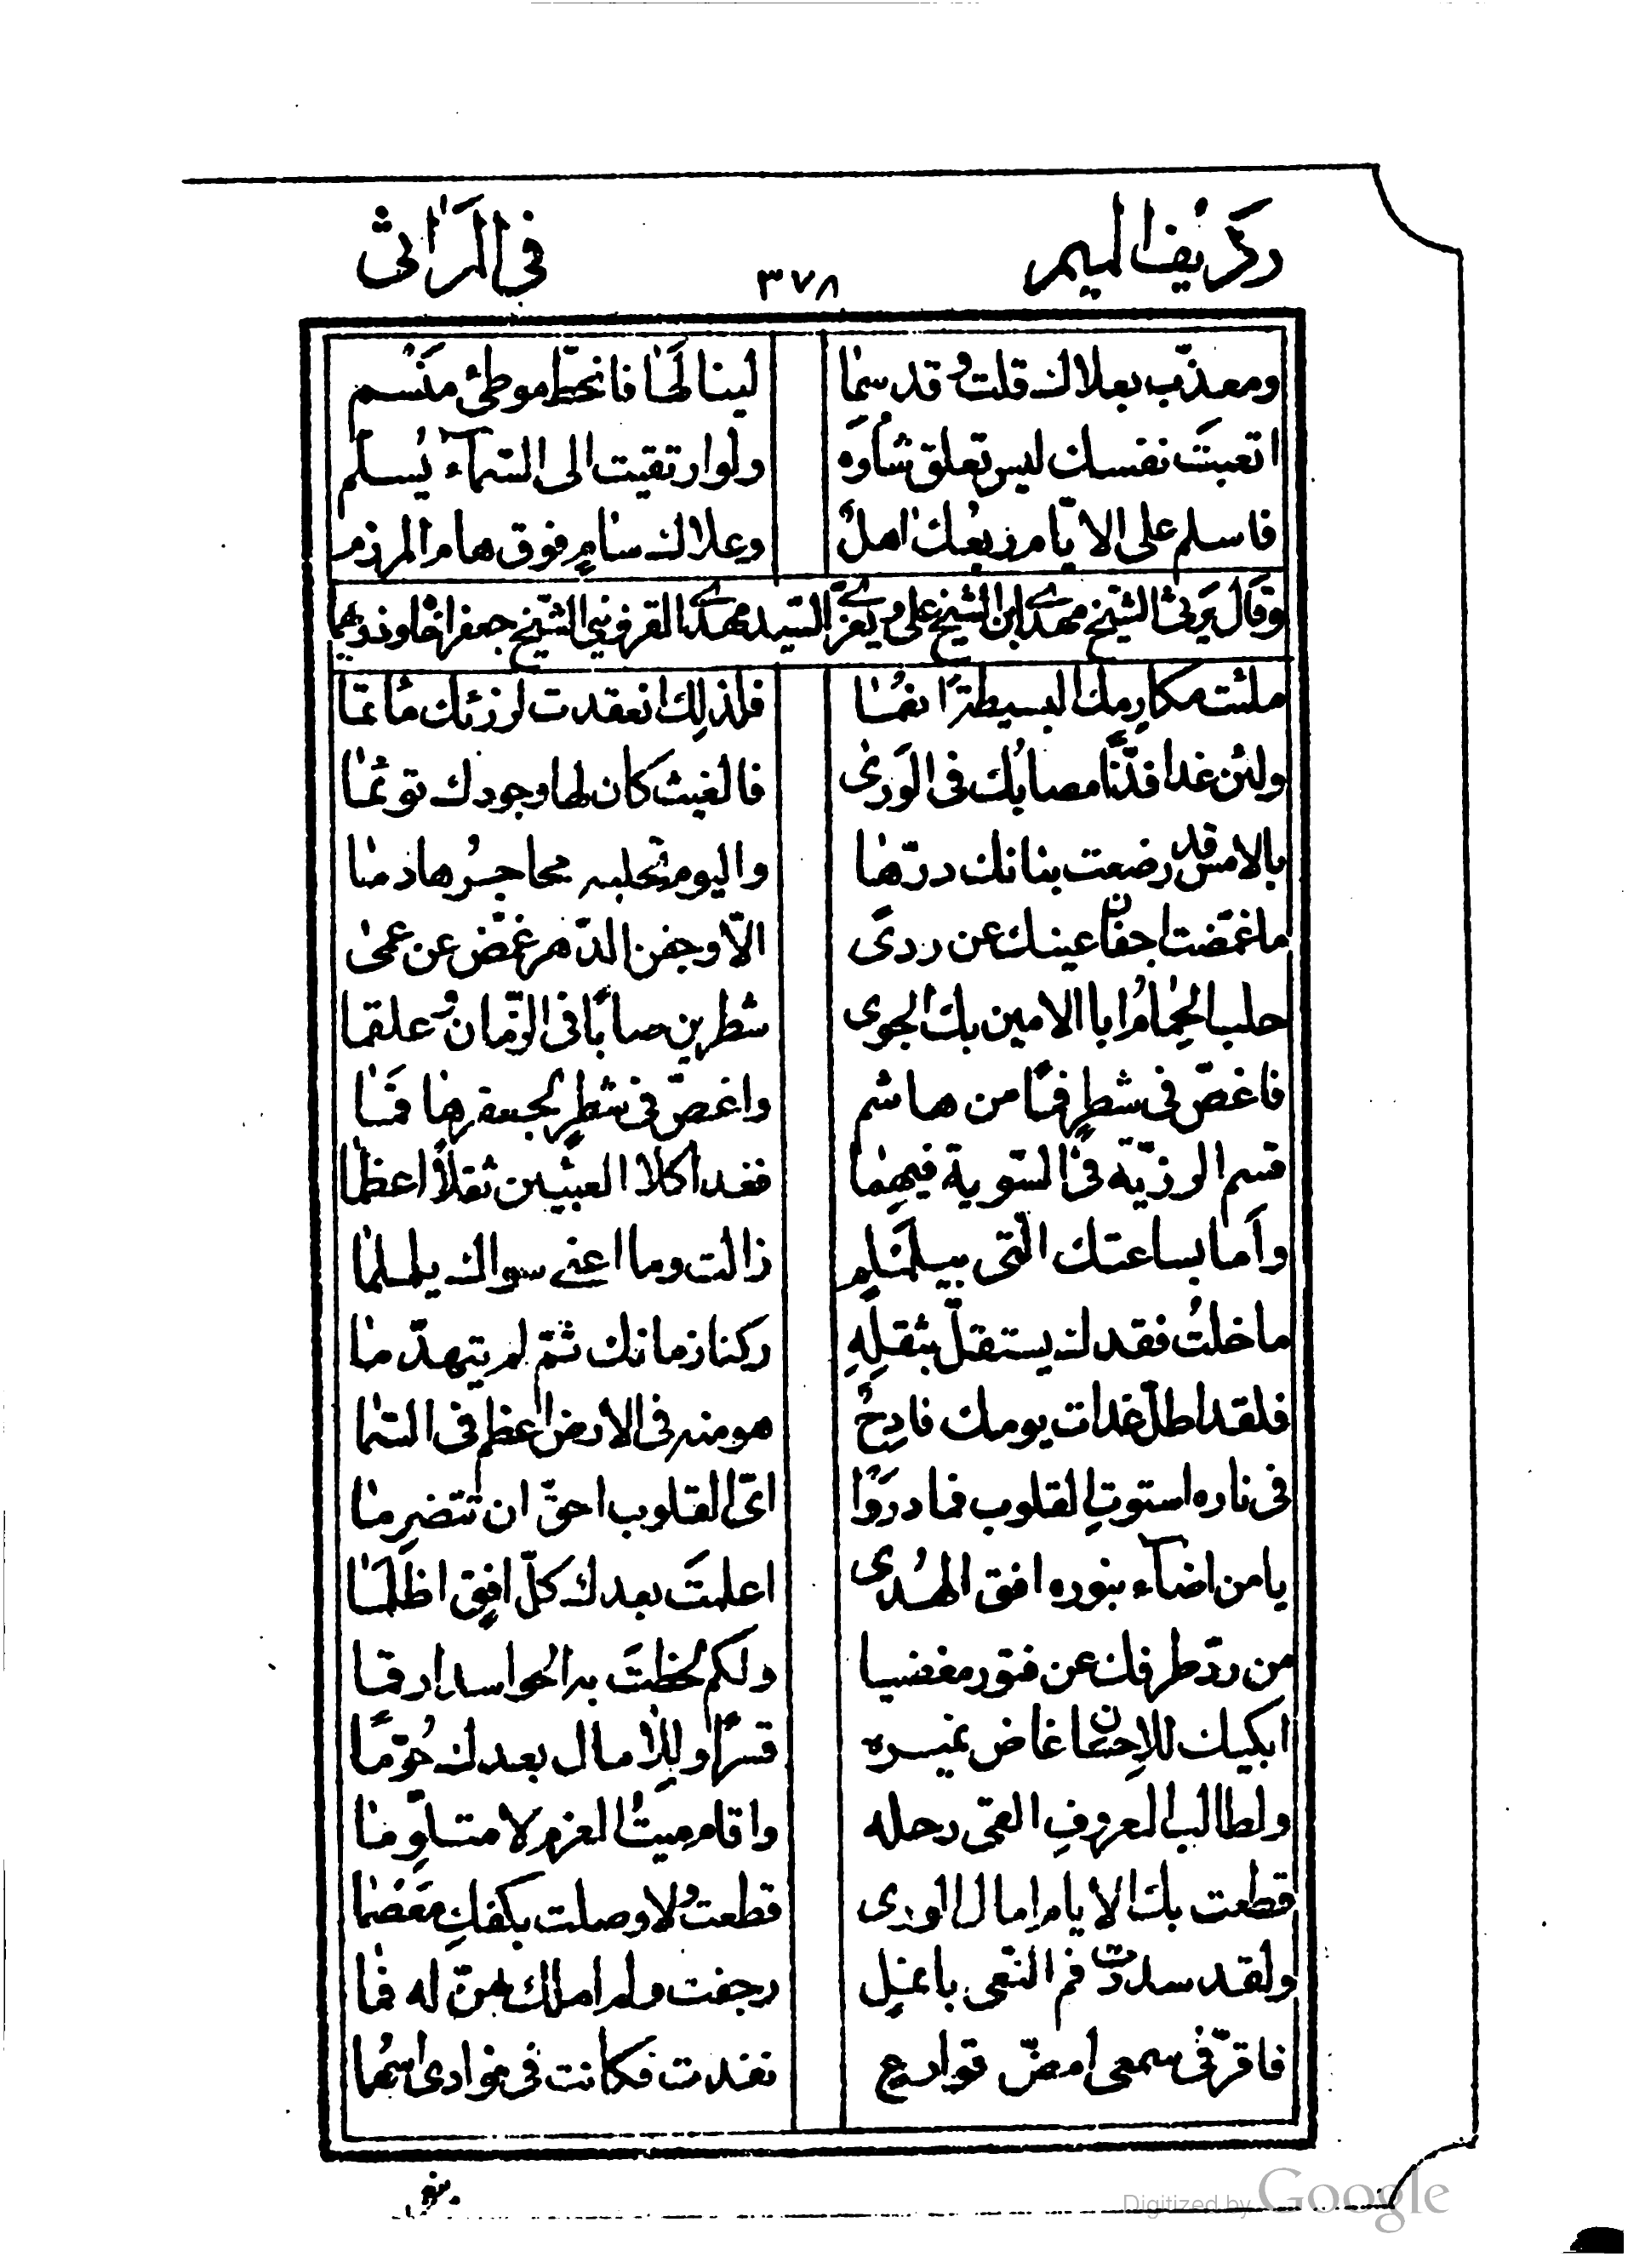 رديف الميم ٣٧٨ في المراثي
ومعذّب بعلاك قلت وقد سما لينالها فانحطّ موطئ منسم
اتعبتَ نفسك ليس تعلق شأوه ولو ارتقيت الى السّمآء بسلّم
فاسلم على الايّام ربعك اهلٌ وعلاك سنامٍ فوق هام المرزم
وقال يرثي الشيخ مهدي ابن الشيخ علي ويعزّي السّيد مهدي القزويني الشّيخ جعفرا خا وندويهما
ملئت مكارمك البسيطة انعُما فلذلك انعقدت لرزئك مأتما
ولئن غدا فذًّا مصابُك في الورى فالغيث كان لها وجودك توئما
بالامس قد رضعت بنانك درّها واليوم تحلبه محاجرُها دما
ما غمّضت اجفان عينك عن ردىً الّا وجفن الدّهر غمّض عن عمى
حلب الحِمامُ ابا الامين بك الجوى شطرين صابًا في الزّمان وعلقما
فاغصّ في شطرٍ فمًا من هاشم واغصّ في شطرٍ لجعفرها فما
قسم الرزيّة في السّوية فيهما فغدا كلا العبئين ثقلًا اعظما
وأما بساعتك التي بيلملم زالت وما اعني سواك يلملما
ما خلتُ فقدك يستقلّ بثقلِهِ ركنا زمانك ثمّ لم يتهدّما
فلقد اطلّ غدات يومك فادحٌ هو منه في الارض اعظم في السّما
في ناره استوتِ القلوب فما دروا ايّ القلوب احقّ ان تتضرما
يا من اضآء بنوره افق الهُدى اعلمتَ بعدك كلّ افقٍ اظلما
من ردّ طرفك عن فتور مغضيا ولكم لحظتَ به الحواسد ارقما
ابكيك للاِحسان غاض نميره قسرًا وللآمال بعدك حُوّما
ولطالب المعروفِ القى رحله واقام ميتُ العزم لا متلوّما
قطعت بك الايام امال الورى قطعت ولا وصلت بكفك معصما
ولقد سددت فم النّعى بانملٍ رجفت ولم املك بهنّ له فما
فاقرّ في سمعي امضّ قوارع نفذت فكانت في فوادى اسهُما